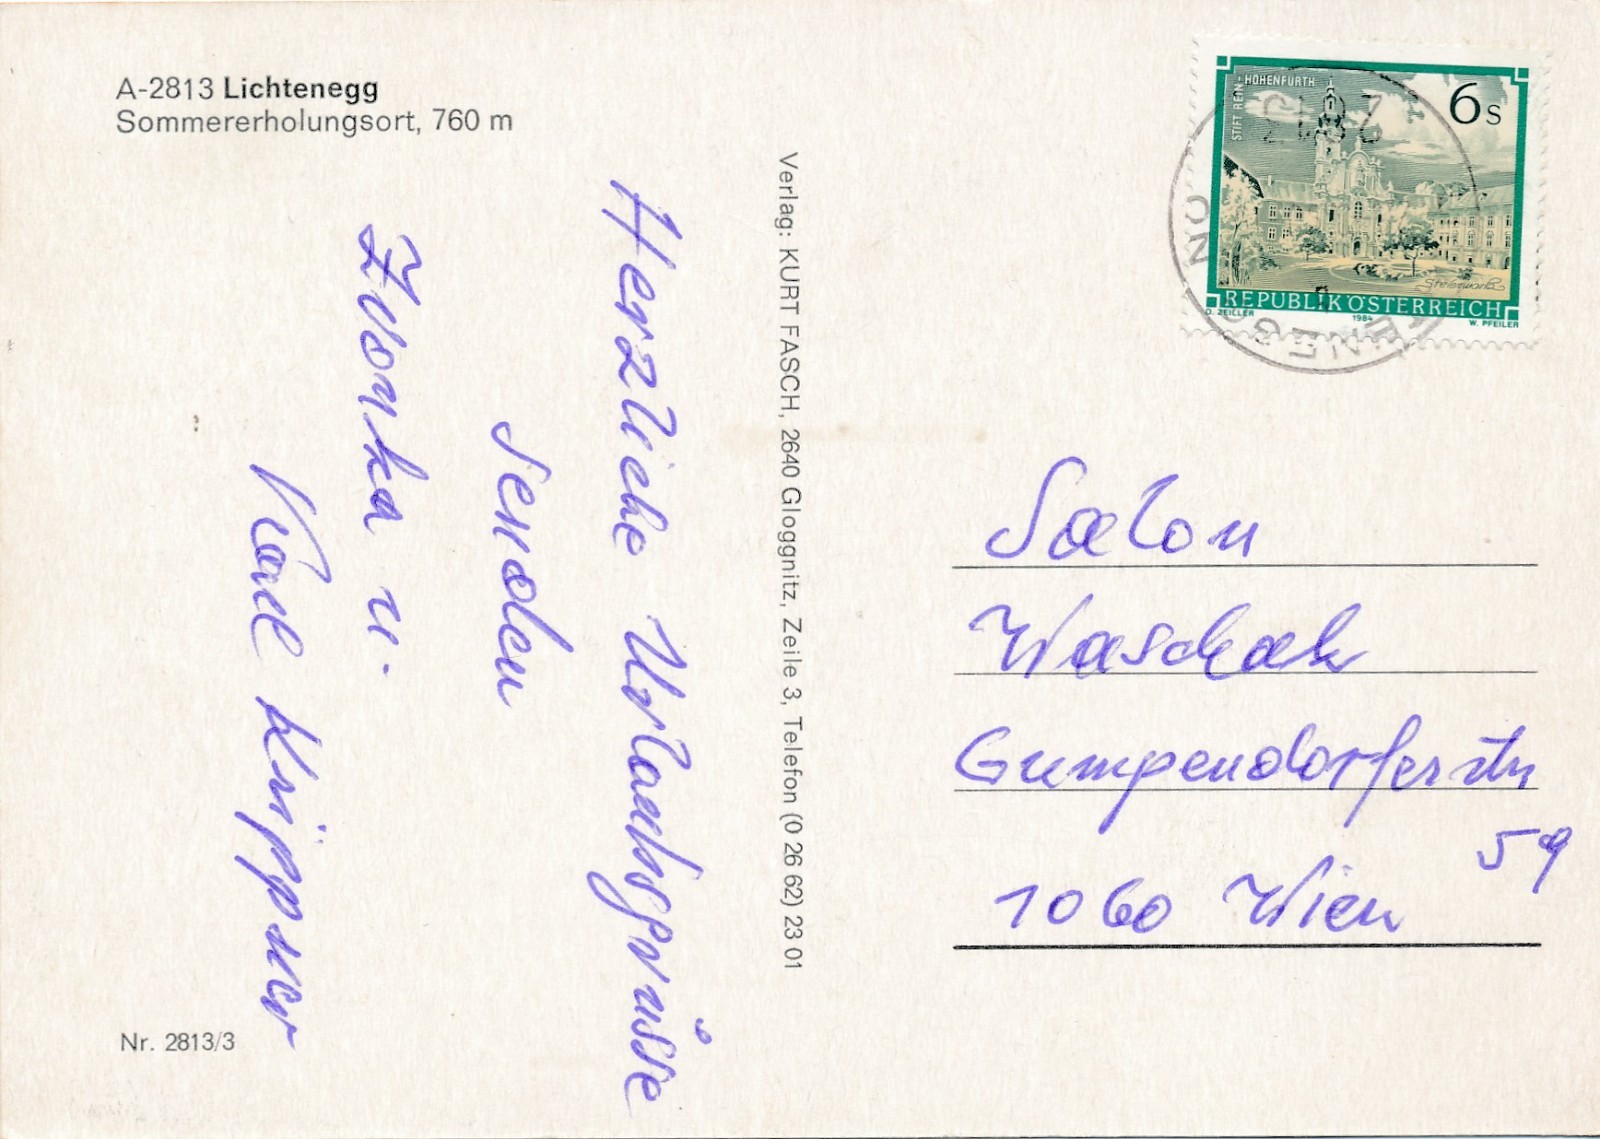 A-2813 Lichtenegg
Sommererholungsort, 760 m
Herzliche Urlaubsgrüsse
senden
Ivonka u.
Karl Krippner
Nr. 2813/3
Verlag: KURT FASCH, 2640 Gloggnitz, Zeile 3, Telefon (0 26 62) 23 01
STIFT REIN-HOHENFURTH
6 S
Steiermark
REPUBLIK ÖSTERREICH
O. ZEILLER 1984 W. PFEILER
2813
NÖ
Salon
Waschak
Gumpendorferstr
59
1060 Wien